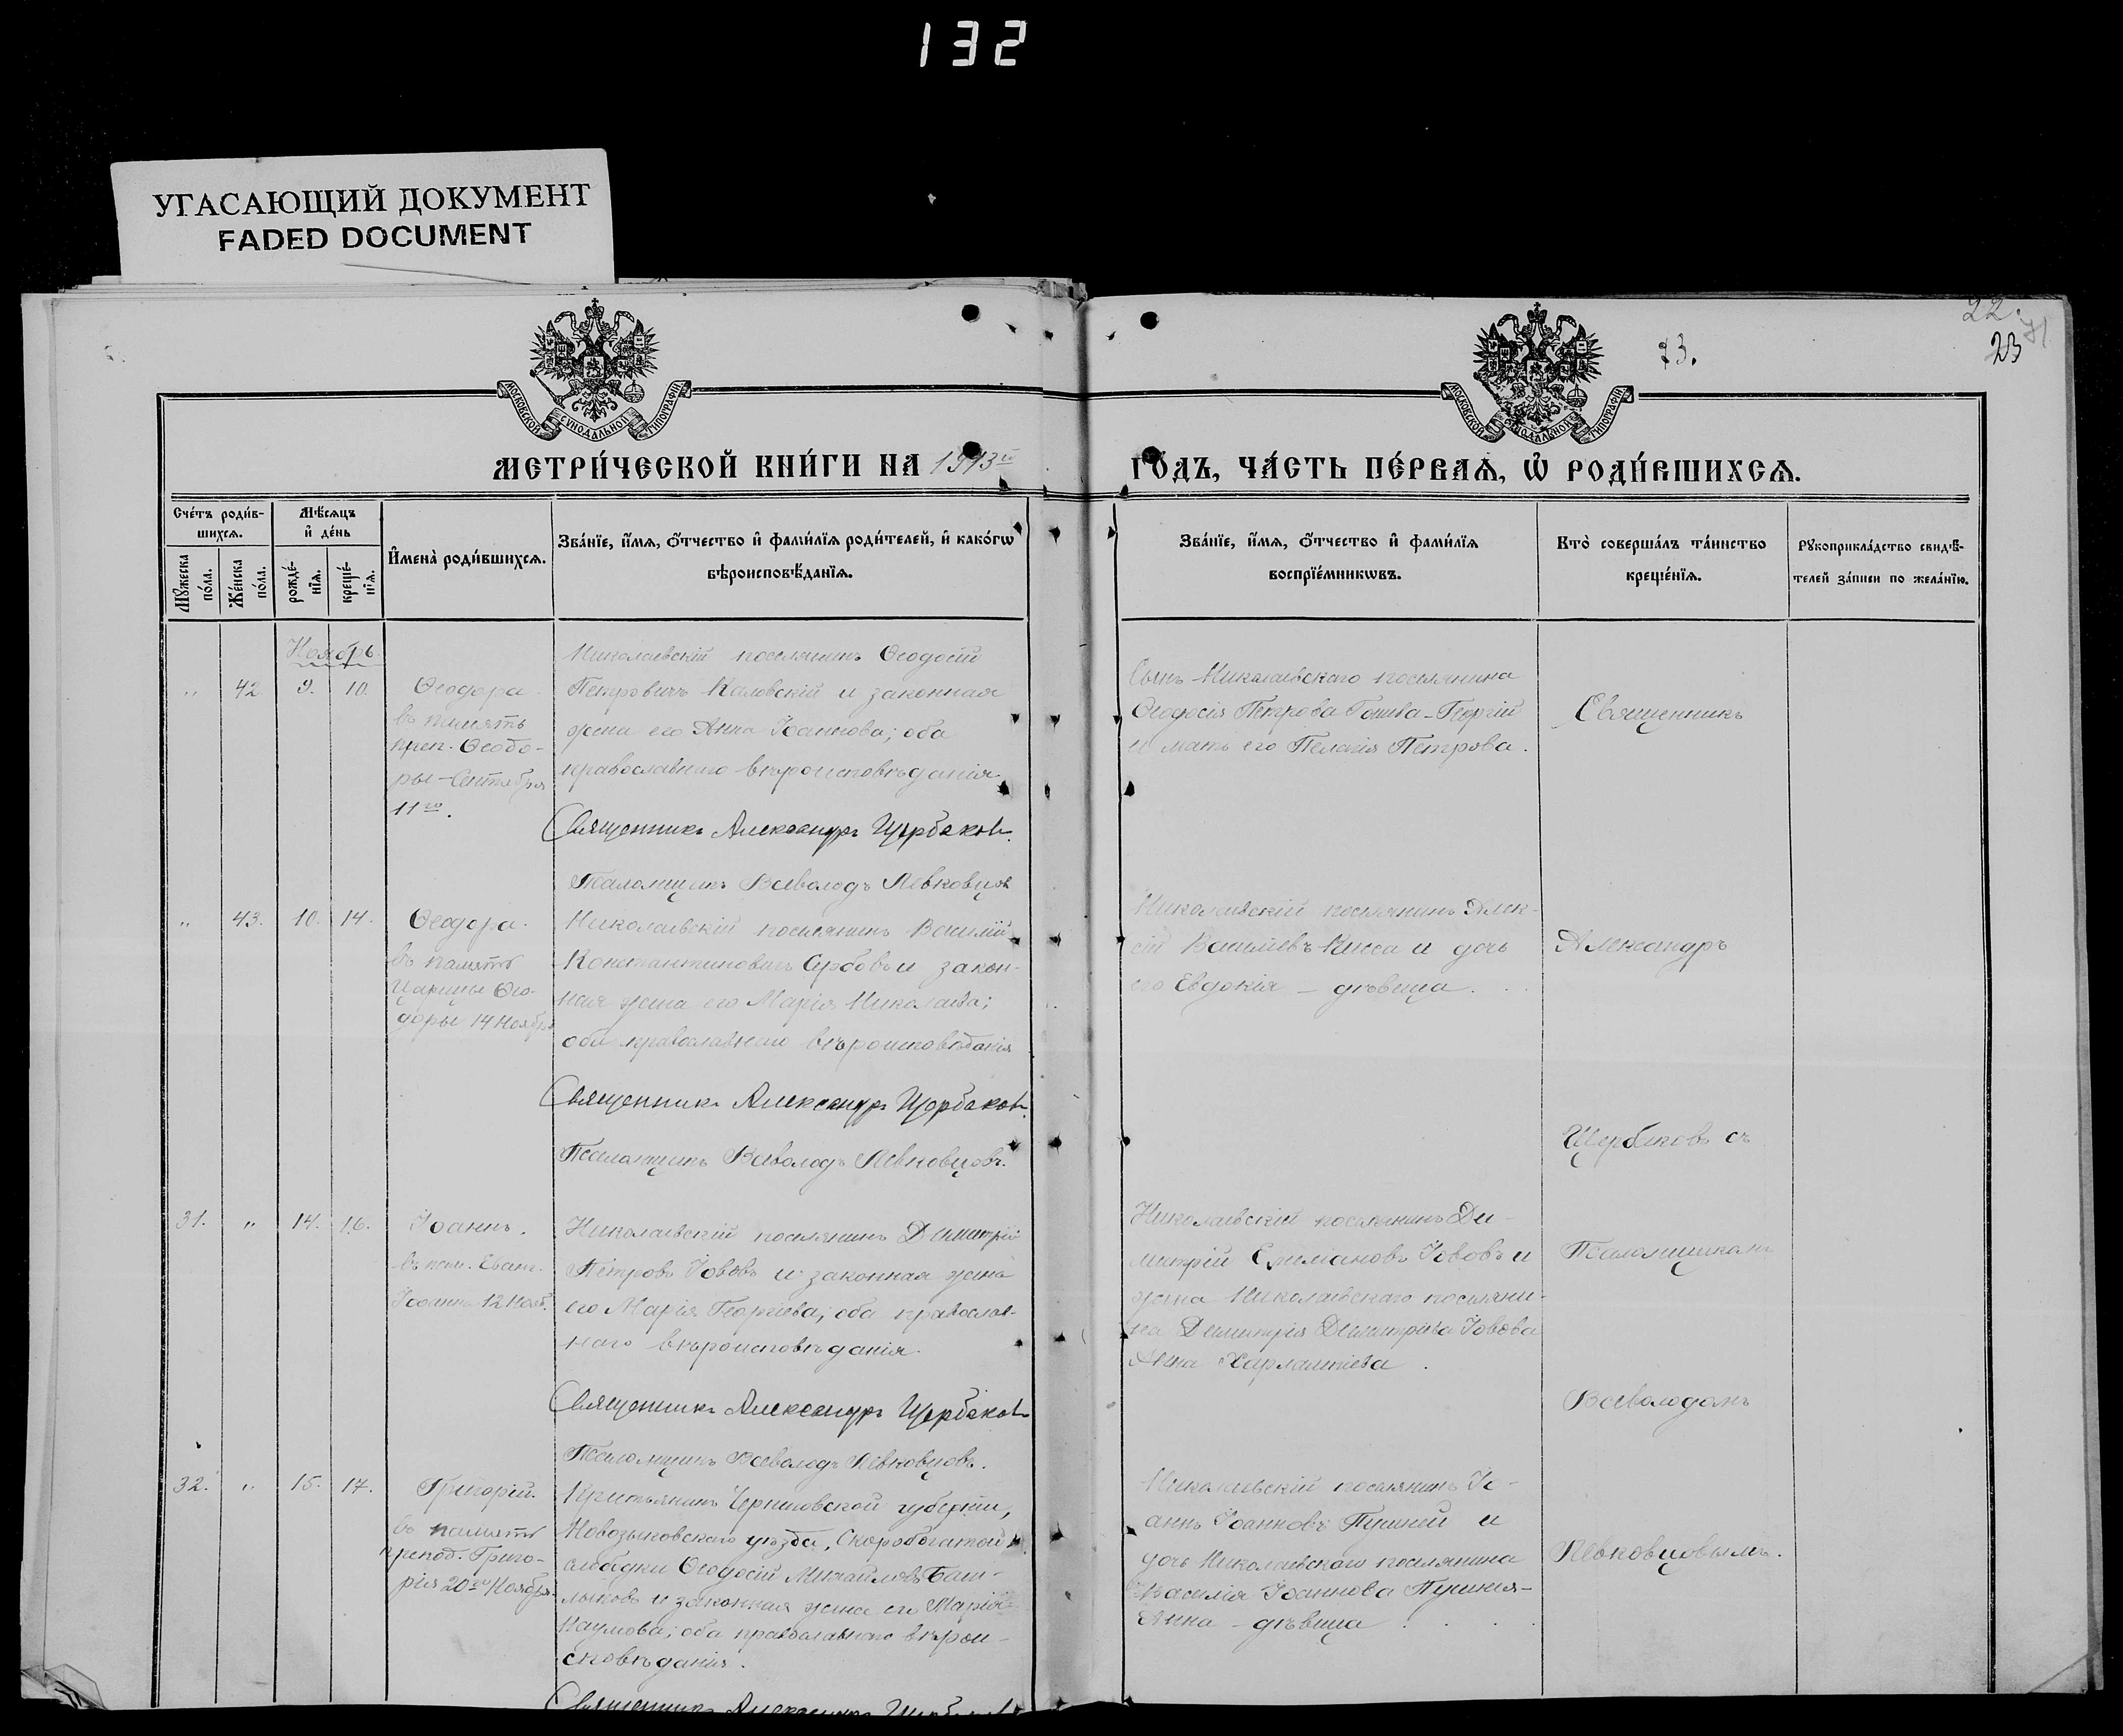 132
УГАСАЮЩИЙ ДОКУМЕНТ
FADED DOCUMENT
22.
73.
23
МОСКОВСКОЙ СѴНОДАЛЬНОЙ ТИПОГРАФІИ
МОСКОВСКОЙ СѴНОДАЛЬНОЙ ТИПОГРАФІИ
МЕТРИ́ЧЕСКОЙ КНИ́ГИ НА 1913й
ГО́ДЪ, ЧА́СТЬ ПЕ́РВАѦ, Ѡ҆ РОДИ́ВШИХСѦ.
Сче́тъ роди́в-
шихсѧ.
Мꙋ́жеска по́ла.
Же́нска по́ла.
Мѣ́сѧцъ
и҆ де́нь
рожде́-
нїѧ.
креще́-
нїѧ.
И҆мена̀ роди́вшихсѧ.
Зва́нїе, и҆́мѧ, ѻ҆́тчество и҆ фами́лїѧ роди́телей, и҆ како́гѡ
вѣроисповѣ́данїѧ.
Зва́нїе, и҆́мѧ, ѻ҆́тчество и҆ фами́лїѧ
воспрїе́мникѡвъ.
Кто̀ соверша́лъ та́инство
креще́нїѧ.
Рꙋкоприкла́дство свидѣ́-
телей за́писи по жела́нїю.
Ноябрь.
„ 42 9. 10.
Ѳеодора.
въ память
преп. Ѳеодо-
ры - Сентября
11го.
Николаевскій поселянинъ Ѳеодосій
Петровичъ Каловскій и законная
жена его Анна Іоаннова; оба
православнаго вѣроисповѣданія
Священникъ Александръ Щербаковъ.
Псаломщикъ Всеволодъ Левковцовъ
Сынъ Николаевскаго поселянина
Ѳеодосія Петрова - Георгій
и мать его Пелагія Петрова.
Священникъ
„ 43. 10. 14.
Ѳеодора.
въ память
Царицы Ѳео-
доры 14 Ноября
Николаевскій поселянинъ Василій
Константиновичъ Сербовъ и закон-
ная жена его Марія Николаева;
оба православнаго вѣроисповѣданія
Священникъ Александръ Щербаковъ.
Псаломщикъ Всеволодъ Левковцовъ.
Николаевскій поселянинъ Алек-
сій Васильевъ Кисса и дочь
его Евдокія - дѣвица.
Александръ
Щербаковъ съ
31. „ 14. 16.
Іоаннъ.
въ пам. Еванг.
Іоанна 12 Нояб.
Николаевскій поселянинъ Димитрій
Петровъ Іововъ и законная жена
его Марія Георгіева; оба православ-
наго вѣроисповѣданія.
Священникъ Александръ Щербаковъ
Псаломщикъ Всеволодъ Левковцовъ.
Николаевскій поселянинъ Ди-
митрій Іововъ и
жена Николаевскаго поселяни-
на Димитрія Димитріева Іовова
Анна Харлампіева.
Псаломщикомъ
Всеволодомъ
32. „ 15. 17.
Григорій.
въ память
препод. Григо-
рія 20го Ноября.
Крестьянинъ Черниговской губерніи,
Новозыбковскаго уѣзда, Скоробогатой
слободки Ѳеодосій Михайловъ Баш-
лыковъ и законная жена его Марія
Наумова; оба православнаго вѣрои-
сповѣданія.
Священникъ Александръ Щербаковъ
Николаевскій поселянинъ Іо-
аннъ Іоанновъ и
дочь Николаевскаго поселянина
Василія Іоаннова
Анна - дѣвица.
Левковцовымъ.